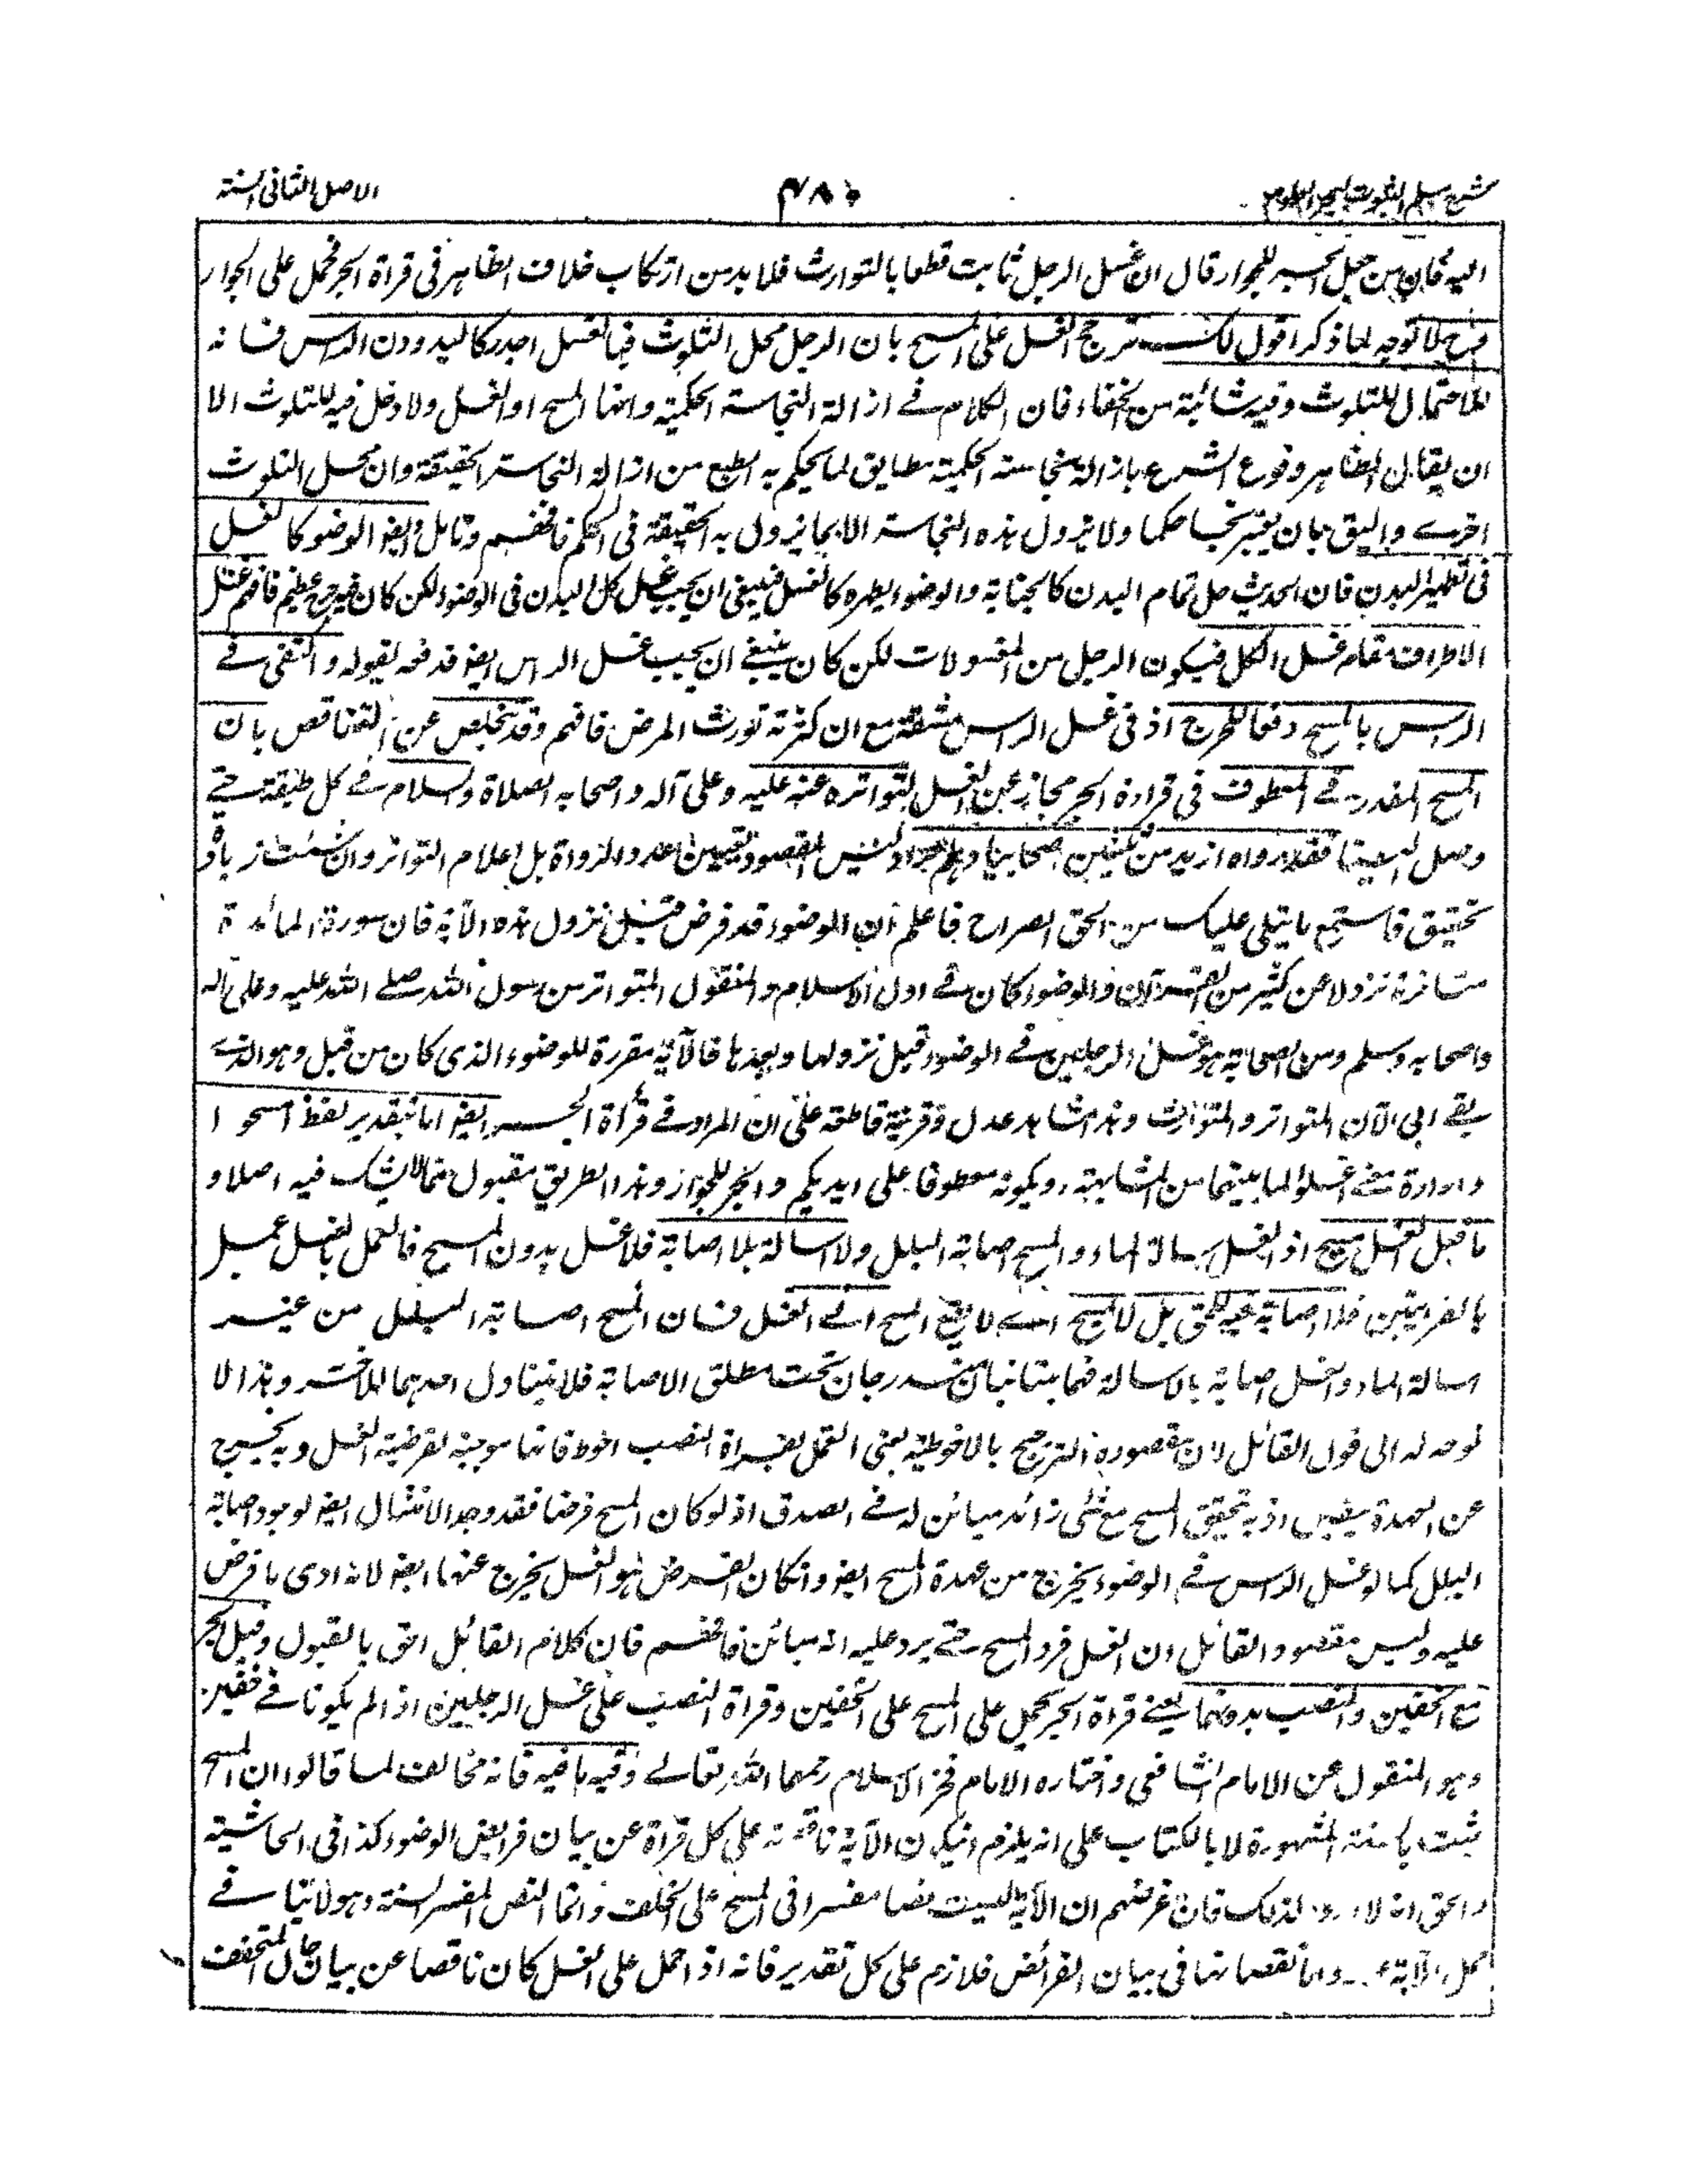 شرح مسلم الثبوت لبحر العلوم
۴۸۰
الاصل الثانی السنة
الیه فان من جعل الجر للجوار قال ان غسل الرجل ثابت قطعا بالتوارث فلا بد من ارتکاب خلاف الظاهر فی قراة الجر فحمل علی الجوار
فح لا توجه لما ذکر اقول لک ترجح الغسل علی المسح بان الرجل محل التلوث فبالغسل اجدر کالید ودن الراس فانه
للاحتمال للتلوث وفیه شائبة من الخفاء فان الکلام فے ازالة النجاسة الحکمیة وانها المسح او الغسل ولا دخل فیه للتلوث الا
ان یقال الظاهر وقوع الشرع بازالة نجاسة الحکمیة مطابق لما یحکم به الطبع من ازالة النجاسة الحقیقة وان محل التلوث
احرے والیق بان یعتبر نجسا حکما ولا یزول هذه النجاسة الا بما یزول به الحقیقة فی الحکم فافهم وتامل وایضا الوضو کالغسل
فی تطهیر البدن فان الحدیث حل تمام البدن کالجنابة والوضو یطهره کالغسل فینبغی ان یجب غسل کل البدن فی الوضوء لکن کان فیه حرج عظیم فاقیم غسل
الاطراف مقام غسل الکل فیکون الرجل من المغسولات لکن کان ینبغے ان یجب غسل الراس ایضا فدفعه بقوله واکتفی فے
الراس بالمسح دفعا للحرج اذ فی غسل الراس مشقة مع ان کثرته تورث المرض فافهم وقد یتخلص عن التناقص بان
المسح المقدر فے المعطوف فی قراءة الجر مجاز عن الغسل لتواتره عنه علیه وعلی آله واصحابه الصلاة والسلام فے کل طبقة حتے
وصل الینا فقد رواه ازید من ثلثین صحابیا ولیس المقصود تعیین عدد الرواة بل اعلام التواتر وان شئت زیادة
تحقیق فاستمع ما یتلی علیک من الحق الصراح فاعلم ان الوضوء قد فرض قبل نزول هذه الآیة فان سورة المائدة
متاخرة نزولا عن کثیر من القرآن والوضوء کان فے اول الاسلام والمنقول المتواتر من رسول الله صلے الله علیه وعلی اله
واصحابه وسلم ومن الصحابة هو غسل الرجلین فے الوضوء قبل نزولها وبعدها فالآیة مقررة للوضوء الذی کان من قبل وهو الذے
بقے الی الآن المتواتر والمتوارث وهذا شاهد عدل وقرینة قاطعة علی ان المراد فے قرأة الجر ایضا اما بتقدیر لفظ امسحوا
وارادة معنے اغسلوا لما بینهما من المشابهة ویکونه معطوفا علی ایدیکم والجر للجوار وهذا الطریق مقبول مما لا شک فیه اصلا و
ما قبل الغسل مسح اذ الغسل اسالة الماء والمسح اصابة البلل ولا اسالة بلا اصابة فلا غسل بدون المسح فالعمل بالغسل عمل
بالقرأتین فلا اصابة فیه للحق بل لا مسح اے لا یقع المسح الے الغسل فان المسح اصابة البلل من غیر
اسالة الماء والغسل اصابة بالاسالة فهما متبائنان مندرجان تحت مطلق الاصابة فلا یتناول احدهما للآخر وهذا لا
توجه له الی قول القائل لان مقصوده الترجح بالاحوطیة یعنی العمل بقراة النصب احوط فانها موجبة لفرضیة الغسل وبه یخرج
عن العهدة بیقین اذ به تحقیق المسح مع شئ زائد مبائن له فے الصدق اذ لو کان المسح فرضا فقد وجد الامتثال ایضا لوجود اصابة
البلل کما لو غسل الراس فے الوضوء یخرج من عهدة المسح ایضا وان کان الفرض هو الغسل یخرج عنها ایضا لانه ادی ما فرض
علیه ولیس مقصود القائل ان الغسل فرد المسح حتے یرد علیه انه مبائن فافهم فان کلام القائل احق بالقبول وقیل الجر
مع الخفین والنصب بدونهما یعنے قراة الجر تحمل علی المسح علی الخفین وقراة النصب علی غسل الرجلین اذ الم یکونا فے خفین
وهو المنقول عن الامام الشافعی واختاره الامام فخر الاسلام رحمهما الله تعالے وفیه ما فیه فانه مخالف لما قالوا ان المسح
ثبت بالسنة المشهورة لا بالکتاب علی انه یلزم ان یکون الآیة ناقصة علی کل قراة عن بیان فرایض الوضوء کذا فی الحاشیة
والحق انه لا ورود لذلک فان غرضهم ان الآیة لیست نصا مفسرا فی المسح علی الخف وانما النص المفسر السنة وهو لا ینافے
حمل الآیة واما نقصانها فی بیان الفرائض فلازم علی کل تقدیر فانه اذ احمل علی الغسل کان ناقصا عن بیان حال المتخفف